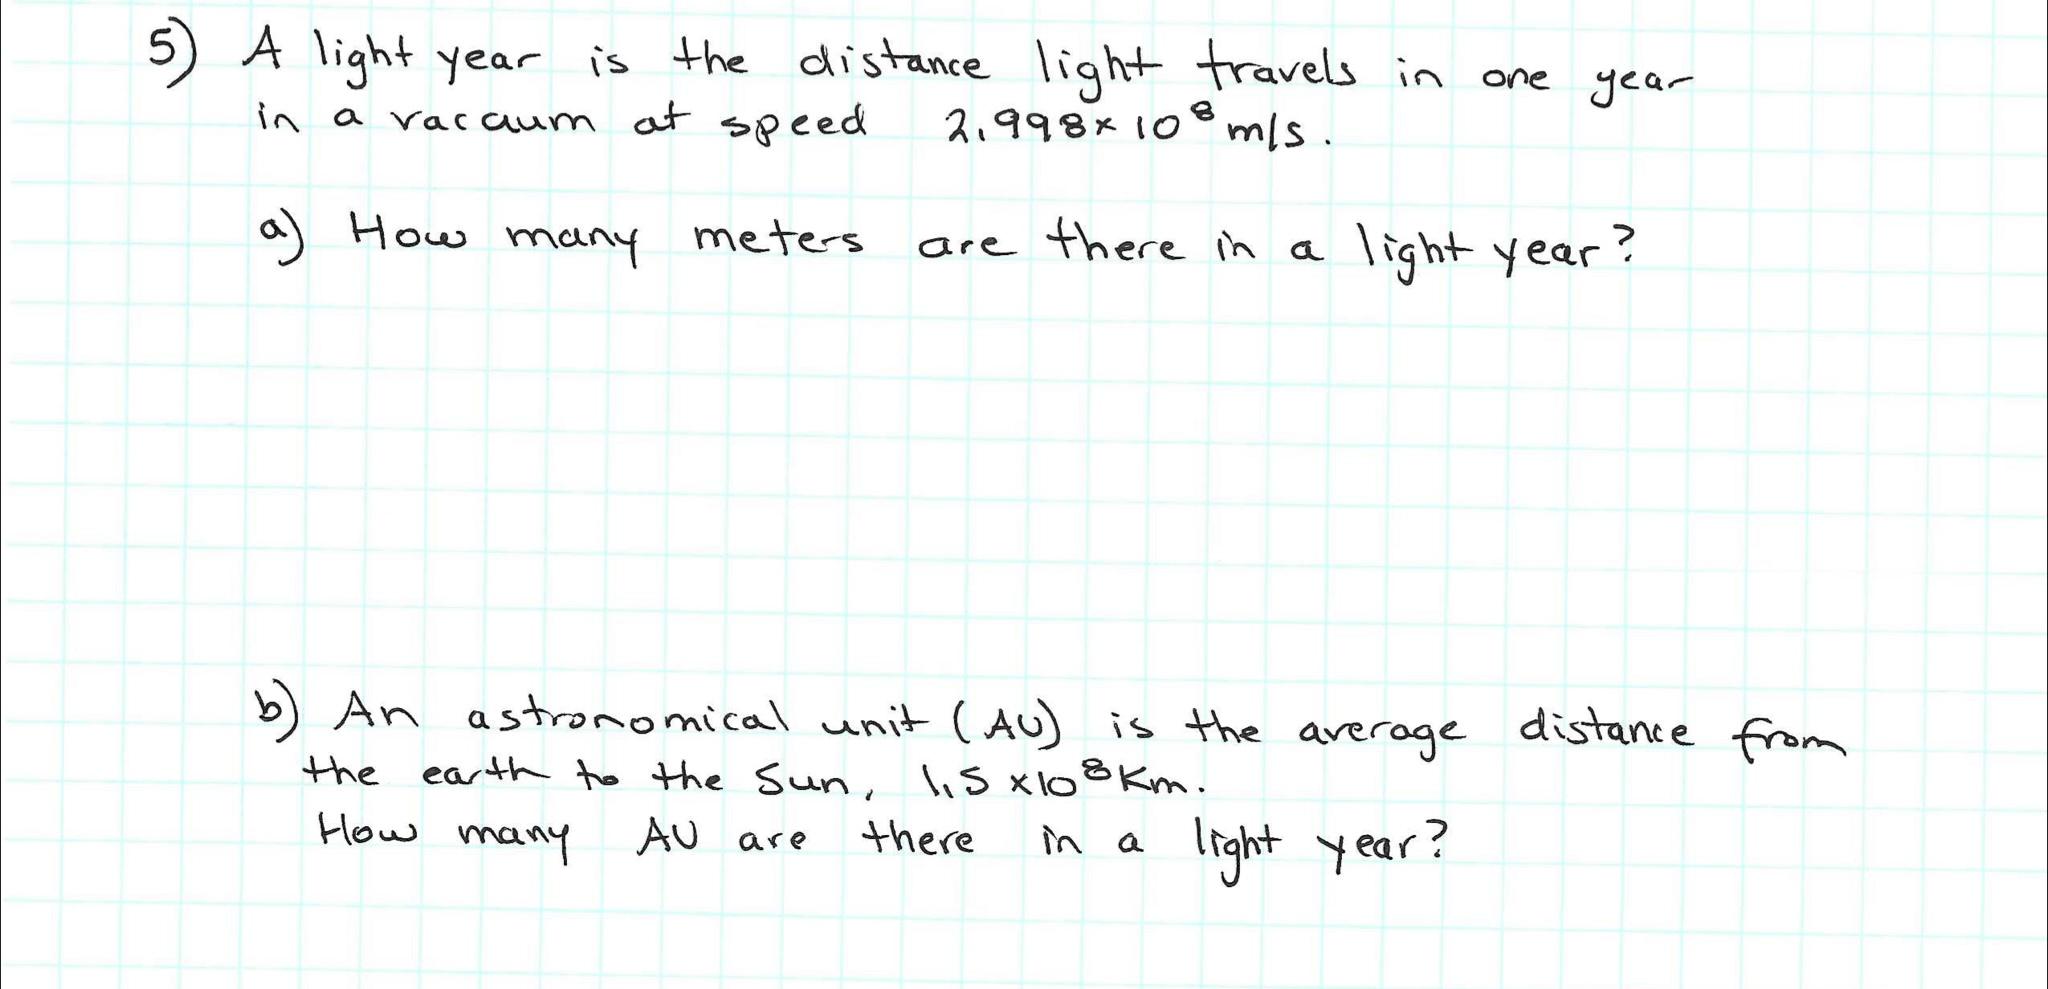 5) A light year is the distance light travels in one year
in a vacuum at speed 2.998 x 10⁸ m/s.
a) How many meters are there in a light year?
b) An astronomical unit (AU) is the average distance from
the earth to the sun, 1.5 x10⁸ Km.
How many AU are there in a light year?